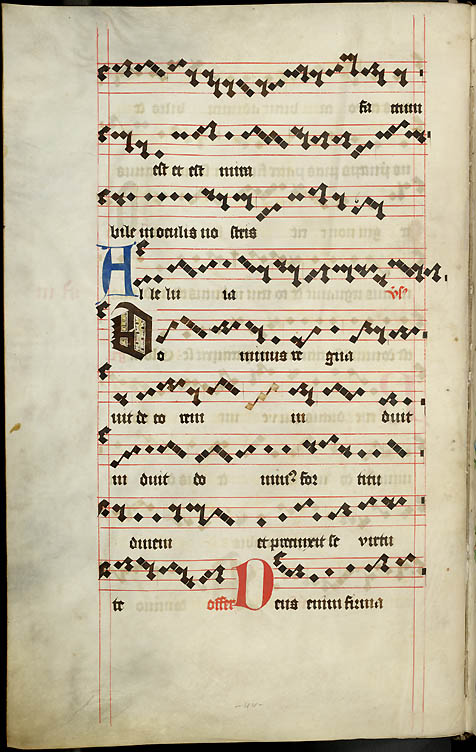 fa ctum
est et est mira
bile in oculis no stris
Al le lu ia vs̃
Do minus re gna
uit de co rem in duit
in duit do minus for titu
dinem et precinxit se virtu
te offer Deus enim firma